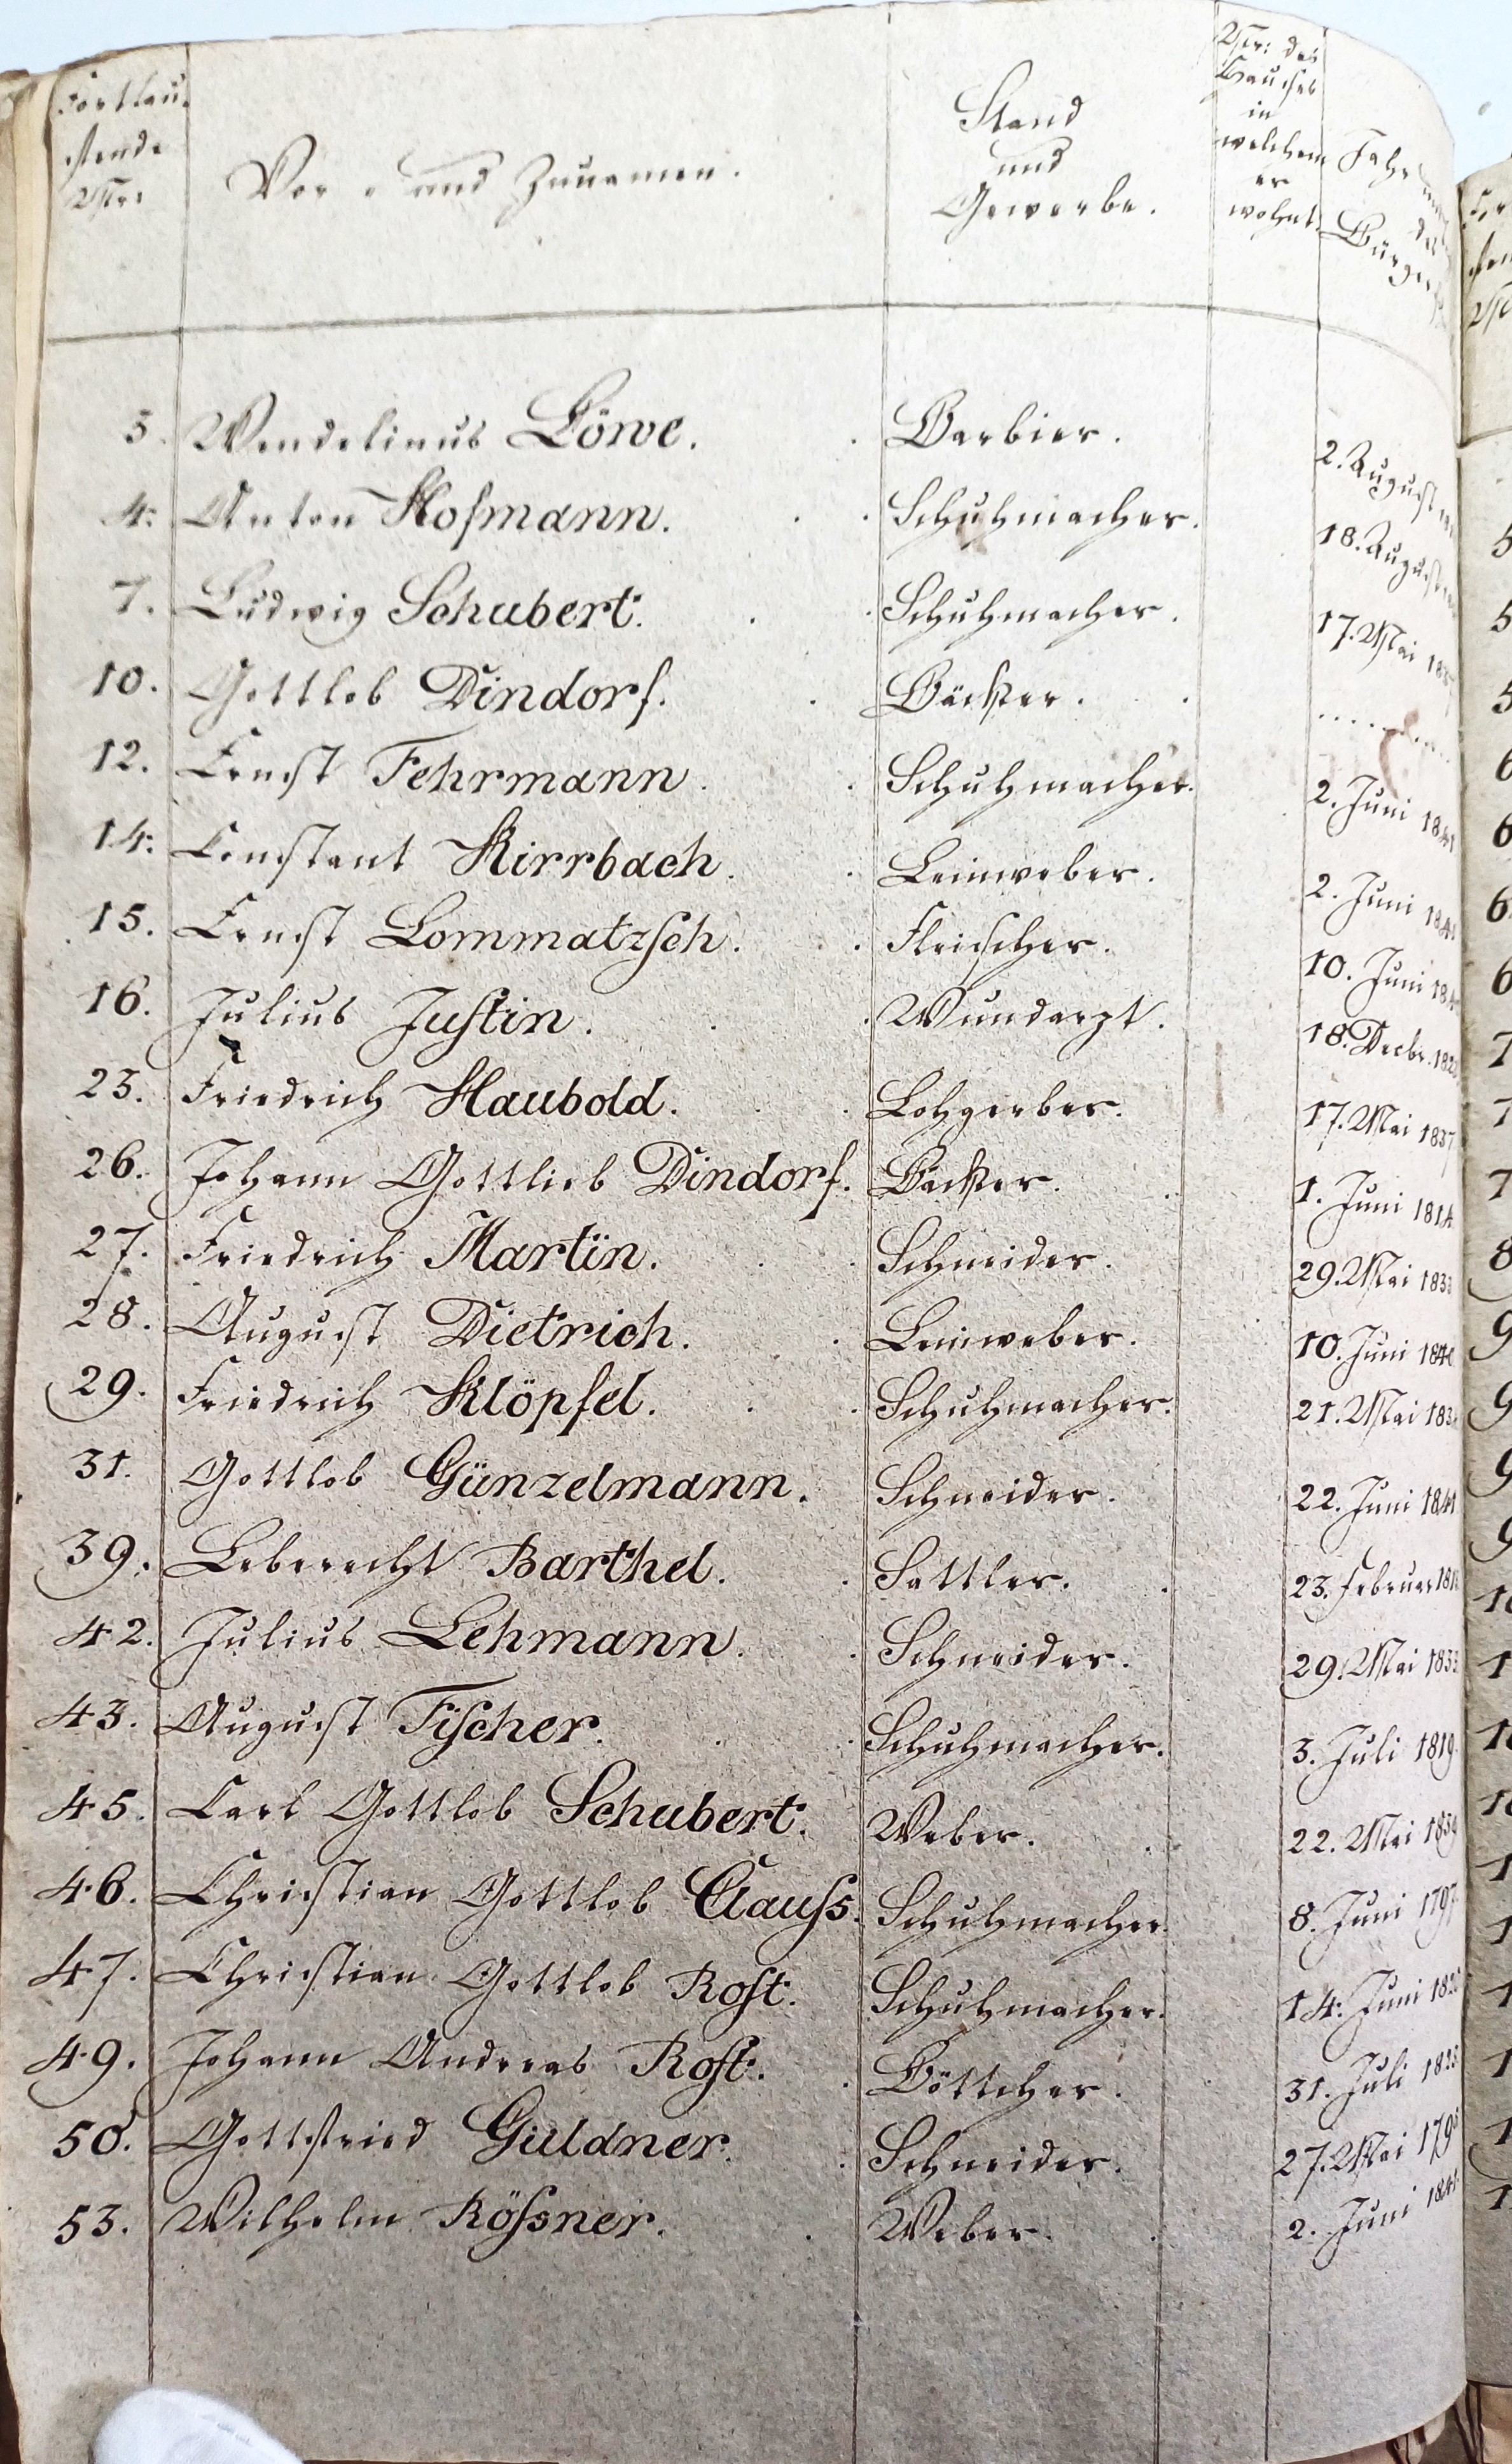 Fortlau-
fende
Nr:
Vor- und Zunamen.
Stand
und
Gewerbe.
Nr: des
Hauses
in
welchem
er
wohnt.
Jahr
des
Bürger
3. Wendelinus Löwe. Barbier. 2. August
4. Anton Hofmann. Schuhmacher. 18. August
7. Ludwig Schubert. Schuhmacher. 17. Mai
10. Gottlob Dindorf. Bäcker.
12. Ernst Fehrmann. Schuhmacher. 2. Juni 1841
14. Constant Kirrbach. Leinweber. 2. Juni
15. Ernst Lommatzsch. Fleischer. 10. Juni
16. Julius Justin. Wundarzt. 18. Decbr.
23. Friedrich Haubold. Lohgerber. 17. Mai 1837
26. Johann Gottlieb Dindorf. Bäcker. 1. Juni 1814
27. Friedrich Martin. Schneider. 29. Mai
28. August Dietrich. Leinweber. 10. Juni
29. Friedrich Klöpfel. Schuhmacher. 21. Mai
31. Gottlob Günzelmann. Schneider. 22. Juni 1841
39. Leberecht Barthel. Sattler. 23. Februar
42. Julius Lehmann. Schneider. 29. Mai 1833
43. August Fischer. Schuhmacher. 3. Juli 1819
45. Carl Gottlob Schubert. Weber. 22. Mai
46. Christian Gottlob Clauss. Schuhmacher. 8. Juni 1797
47. Christian Gottlob Rost. Schuhmacher. 14. Juni
49. Johann Andreas Rost. Böttcher. 31. Juli
50. Gottfried Güldner. Schneider. 27. Mai
53. Wilhelm Rössner. Weber. 2. Juni 1841